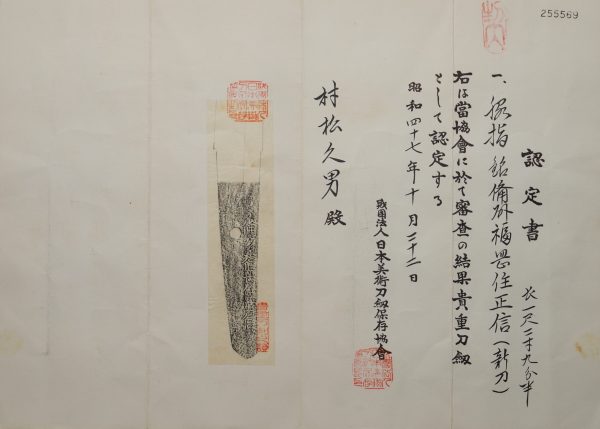 255569
認定書
一、脇指 銘備州福岡住正信(新刀)
長一尺二寸九分半
右は當協會に於て審査の結果貴重刀剱
として認定する
昭和四十七年十月二十二日
財団法人日本美術刀剱保存協會
村松久男殿